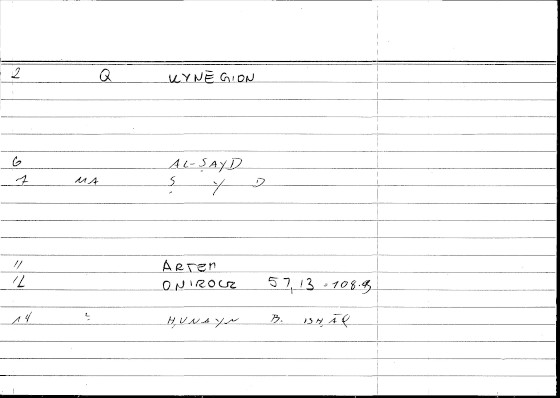 2 Q KYNĒGION
6 AL-ṢAYD
7 MA Ṣ Y D
11 ARTEM
12 ONIROCR 57,13 = 108.9
14 ḤUNAYN B. ISḤĀQ